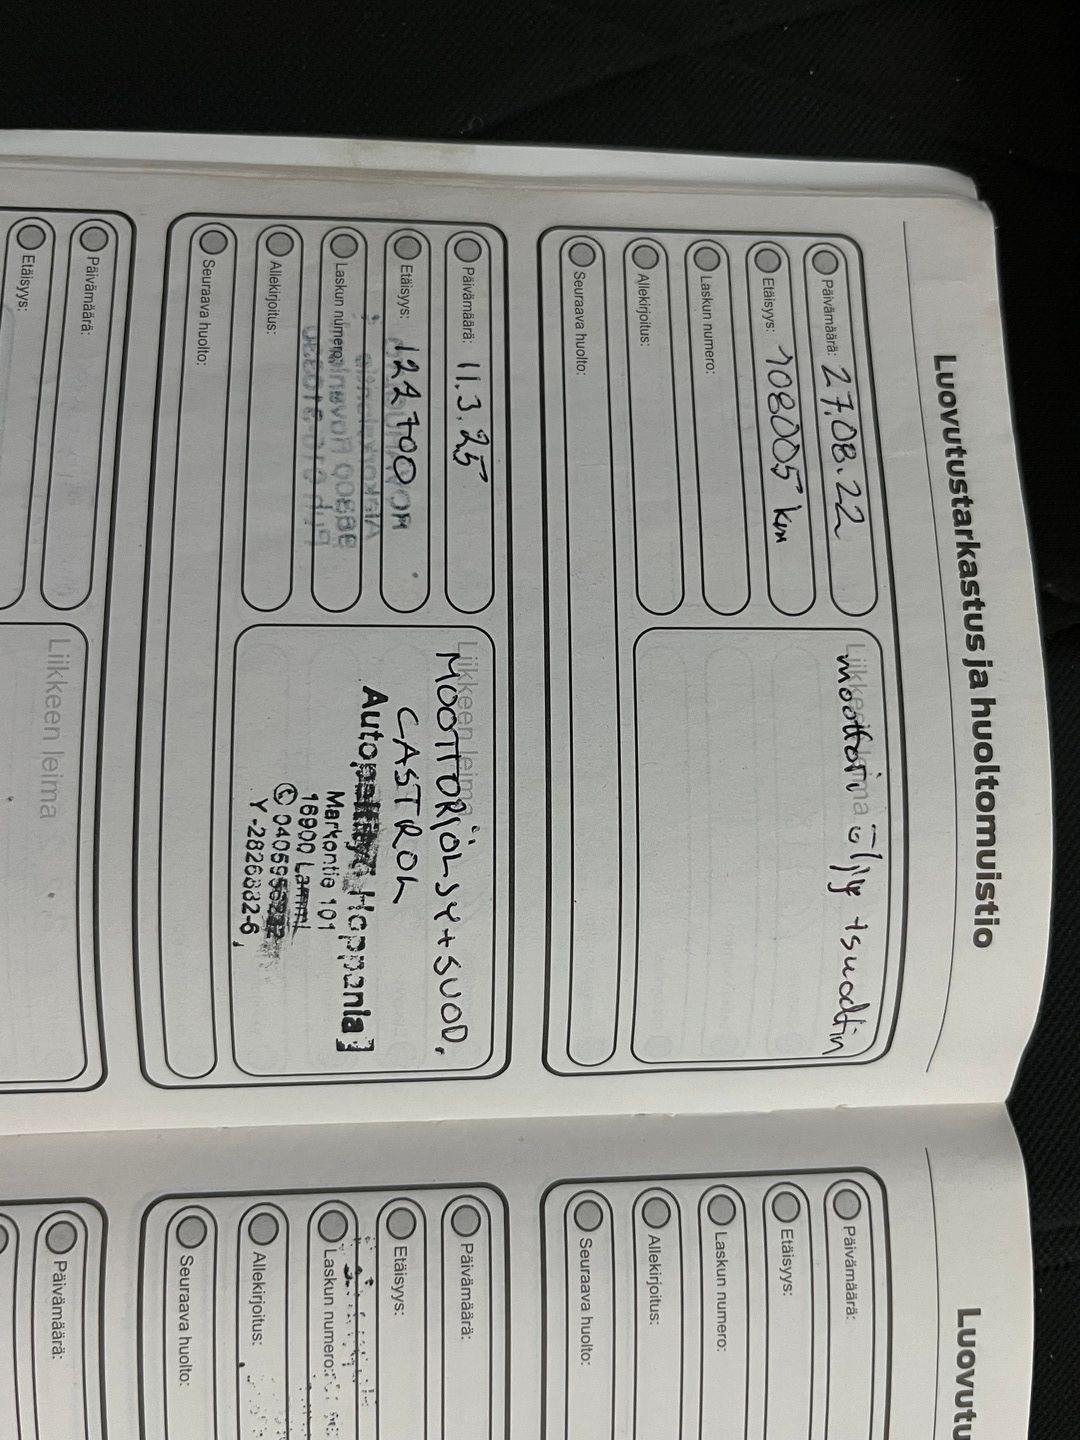 Luovutustarkastus ja huoltomuistio
Päivämäärä: 27.08.22
Etäisyys: 108005 km
Laskun numero:
Allekirjoitus:
Seuraava huolto:
Liikkeen leima
moottori öljy + suodatin
Päivämäärä: 11.3.25
Etäisyys: 122700
Laskun numero:
Allekirjoitus:
Seuraava huolto:
Liikkeen leima
MOOTTORIÖLJY + SUOD.
CASTROL
Hoppania
Markontie 101
16900 Lammi
Y-2826832-6
Päivämäärä:
Etäisyys:
Liikkeen leima
Luovutu
Päivämäärä:
Etäisyys:
Laskun numero:
Allekirjoitus:
Seuraava huolto:
Päivämäärä:
Etäisyys:
Laskun numero:
Allekirjoitus:
Seuraava huolto:
Päivämäärä: